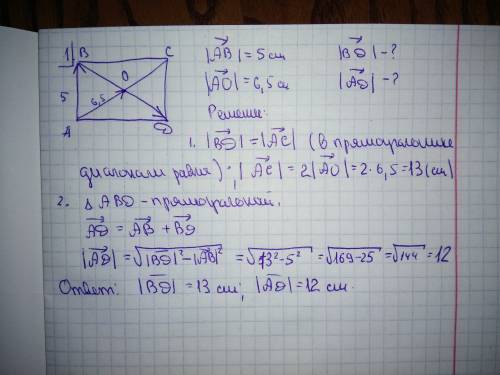 1) B C
|AB| = 5 см |BD| - ?
|AO| = 6,5 см |AD| - ?
O
5 6,5
A D
Решение:
1. |BD| = |AC| (в прямоугольнике
диагонали равны); |AC| = 2|AO| = 2·6,5 = 13 (см)
2. △ ABD - прямоугольный.
AD = AB + BD
|AD| = √|BD|² - |AB|² = √13² - 5² = √169 - 25 = √144 = 12
Ответ: |BD| = 13 см; |AD| = 12 см.